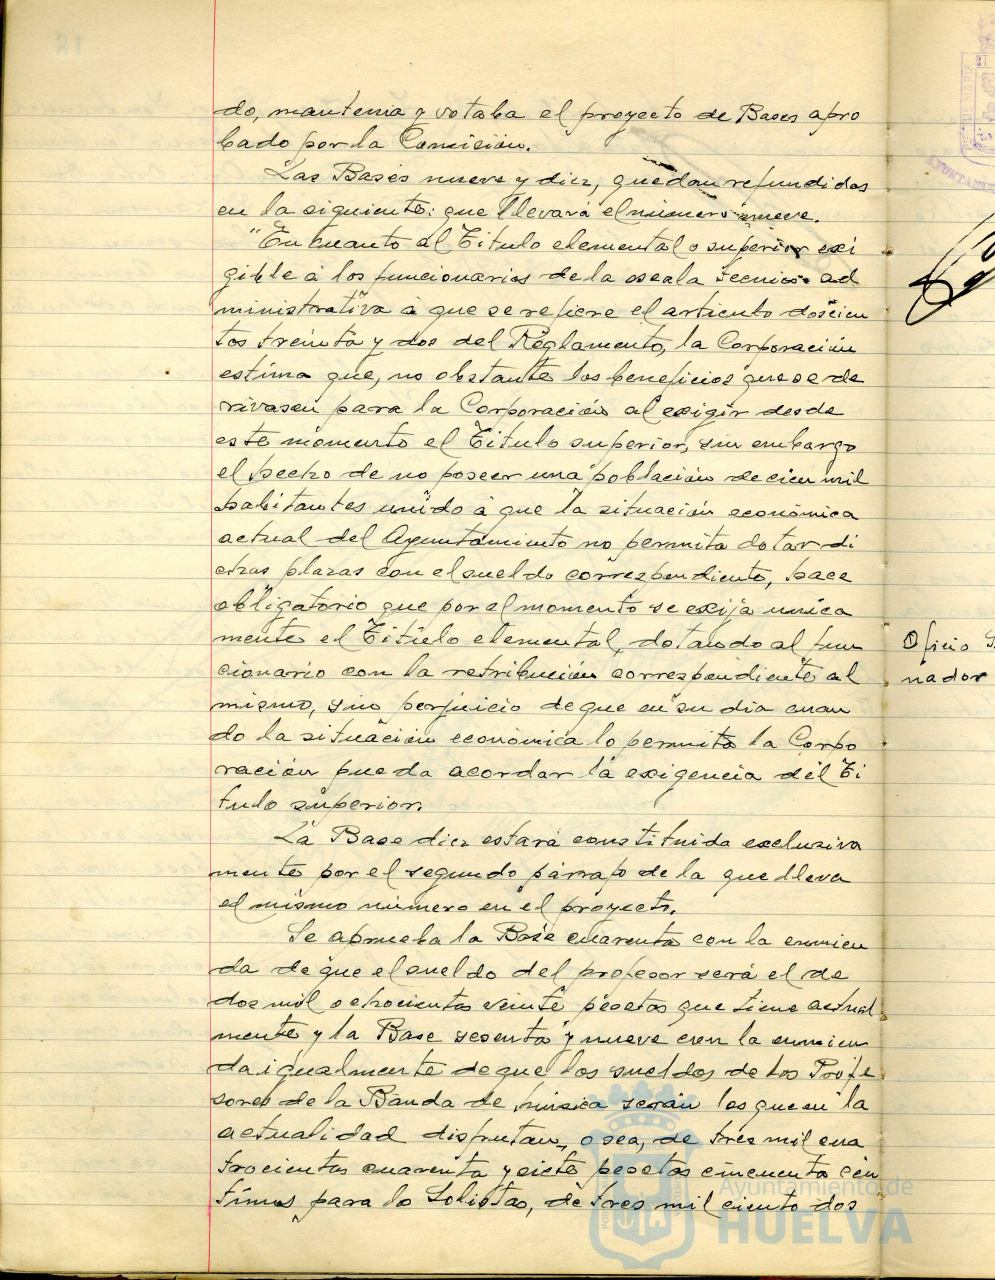 do, mantenia y votaba el proyecto de Bases apro
bado por la Comisión.
Las Bases nueve y diez, quedan refundidas
en la siguiente: que llevará el número nueve.
"En cuanto al Titulo elemental o superior exi
gible a los funcionarios de la escala tecnico-ad
ministrativa a que se refiere el articulo doscien
tos treinta y dos del Reglamento, la Corporación
estima que, no obstante los beneficios que se de
rivasen para la Corporación al exigir desde
este momento el Titulo superior, sin embargo
el hecho de no poseer una población de cien mil
habitantes unido a que la situación económica
actual del Ayuntamiento no permita dotar di
chas plazas con el sueldo correspondiente, hace
obligatorio que por el momento se exija unica
mente el Titulo elemental, dotando al fun
cionario con la retribución correspondiente al
mismo, sin perjuicio de que en su dia cuan
do la situación económica lo permita la Corpo
ración pueda acordar la exigencia del Ti
tulo superior.
La Base diez estará constituida exclusiva
mente por el segundo párrafo de la que lleva
el mismo número en el proyecto.
Se aprueba la Base cuarenta con la enmien
da de que el sueldo del profesor será el de
dos mil ochocientas veinte pesetas que tiene actual
mente y la Base sesenta y nueve con la enmien
da igualmente de que los sueldos de los Profe
sores de la Banda de música serán los que en la
actualidad disfrutan, o sea, de tres mil cua
trocientas cuarenta y siete pesetas cincuenta cén
timos para lo Solistas, de tres mil ciento dos
Oficio
nador
Ayuntamiento de
HUELVA